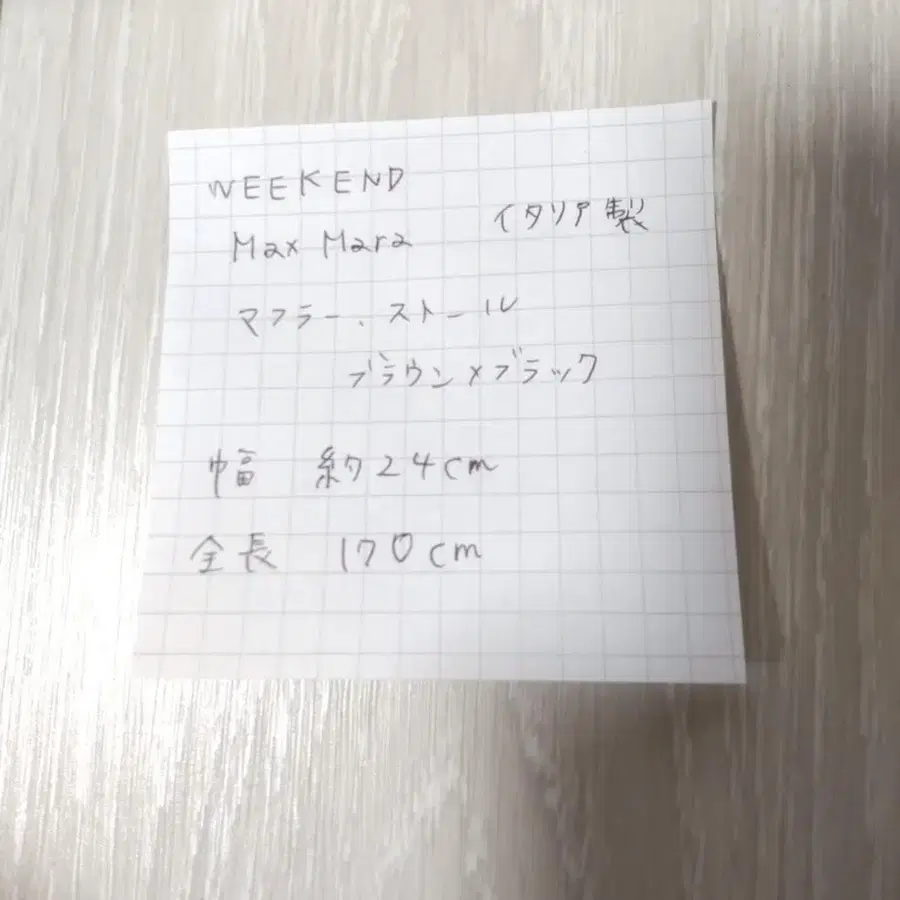 WEEKEND
Max Mara イタリア製
マフラー、ストール
ブラウン×ブラック
幅 約24cm
全長 170cm